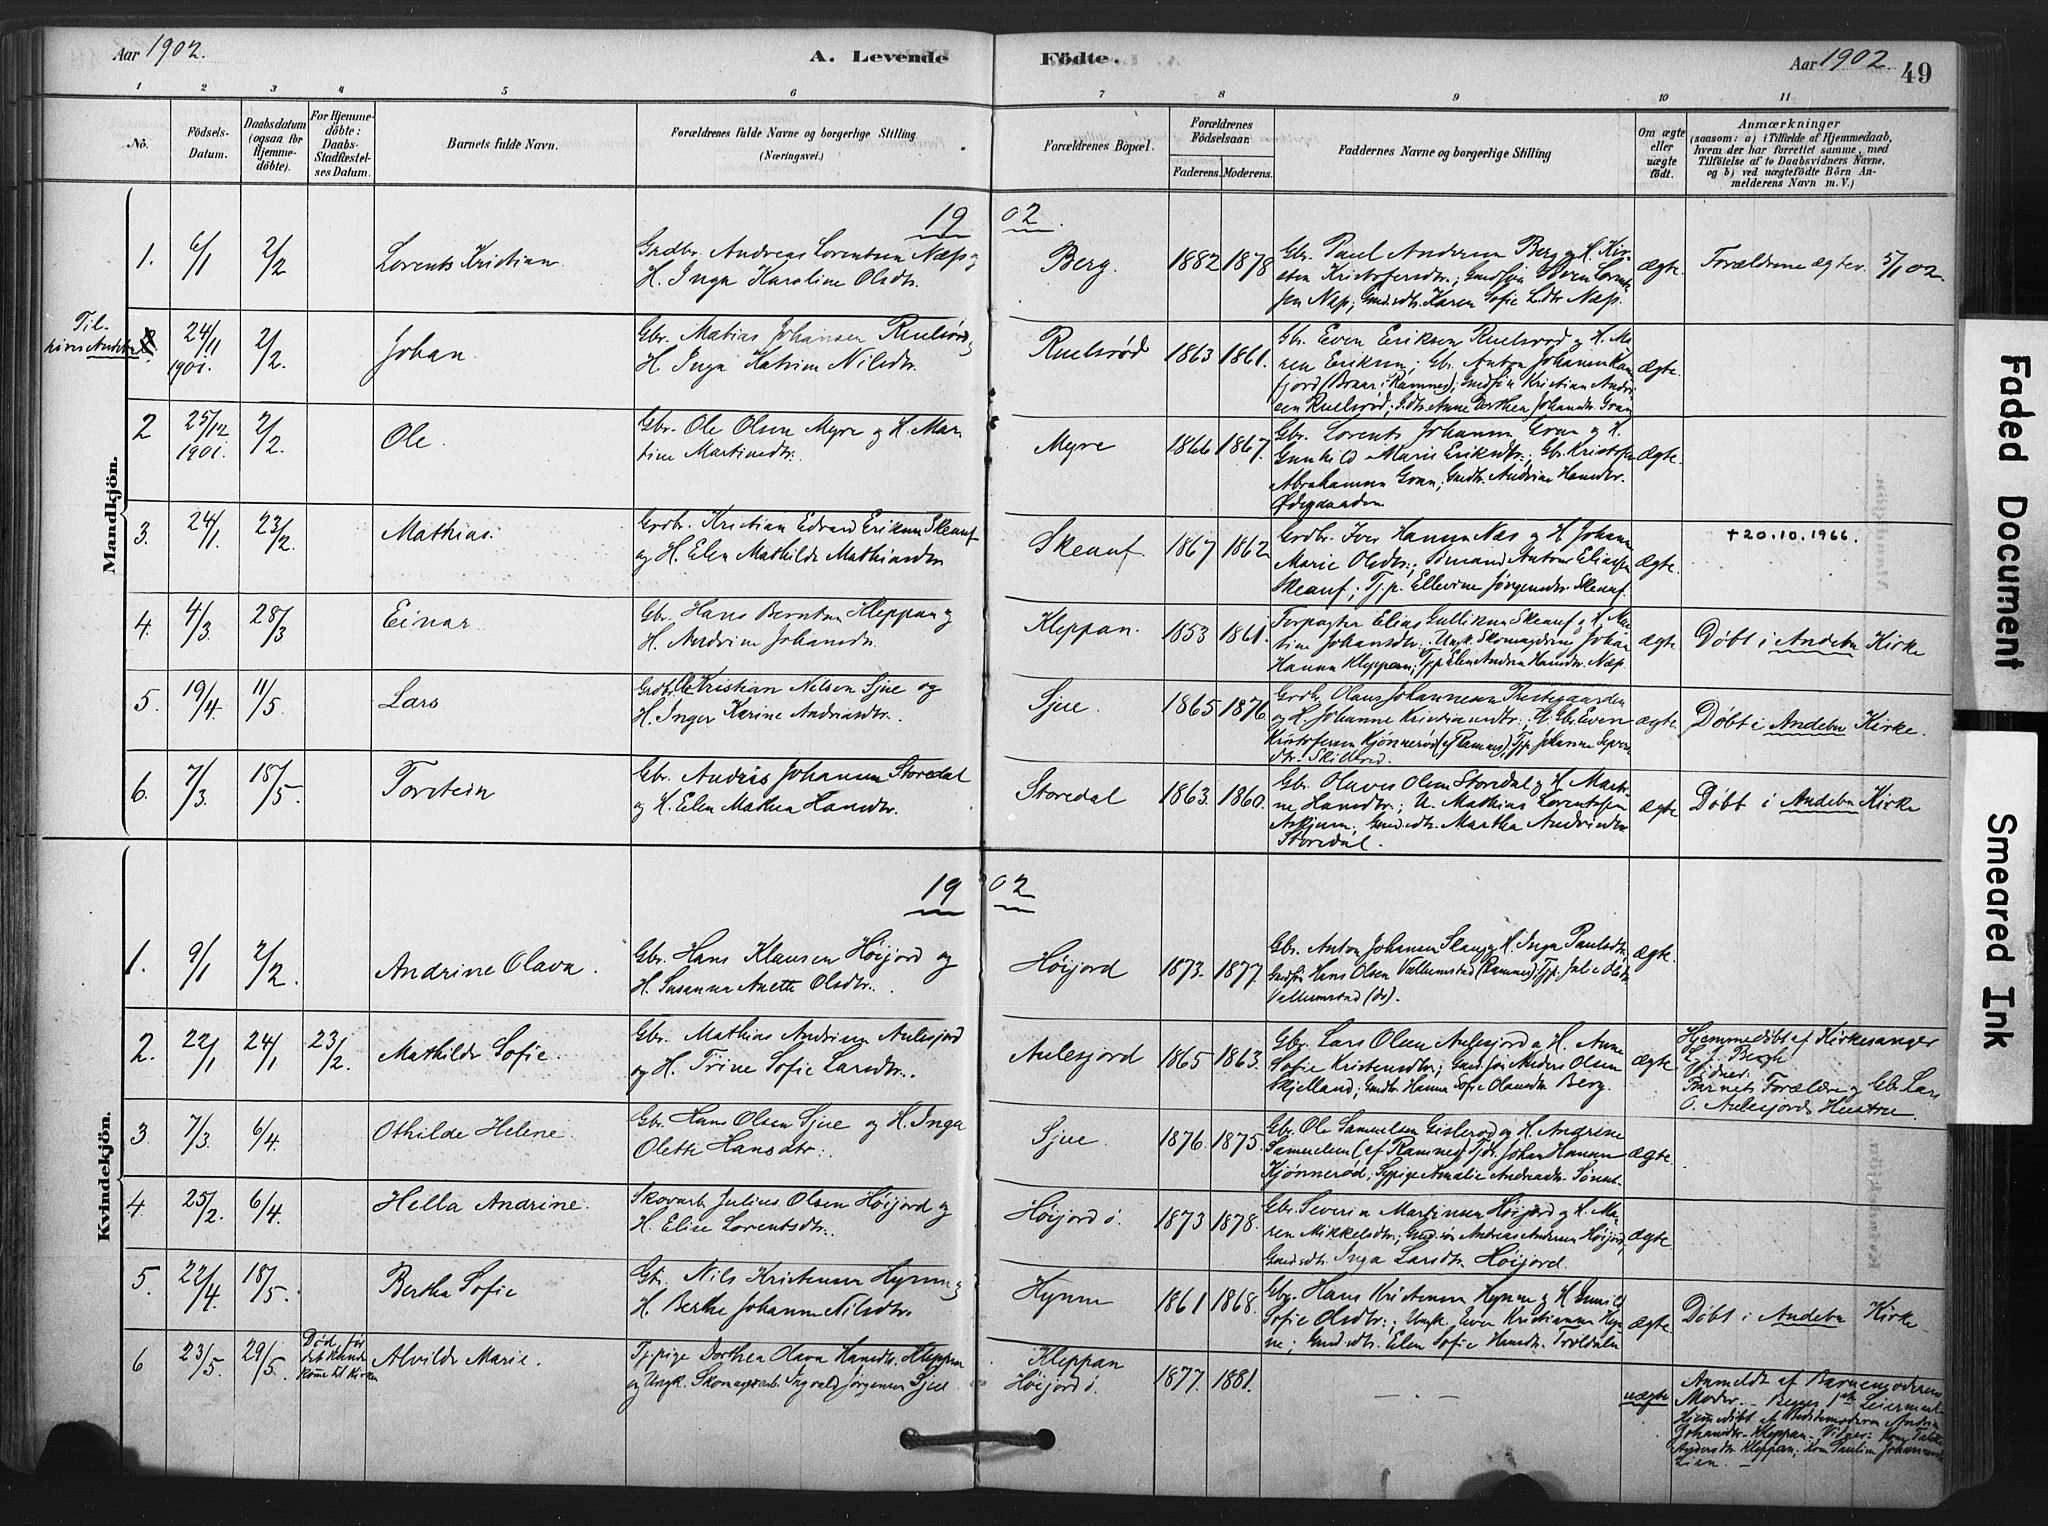 Aar 1902.
A. Levende
Födte.
Aar 1902.
49
1 2 3 4 5 6 7 8 9 10 11
No.
Födsels-
Datum.
Daabsdatum
(ogsaa for
Hjemme-
döbte).
For Hjemme-
döbte:
Daabs-
Stadfæstel-
ses Datum.
Barnets fulde Navn.
Forældrenes fulde Navne og borgerlige Stilling.
(Næringsvei.)
Forældrenes Bopæl.
Forældrenes
Födselsaar.
Faderens. Moderens.
Faddernes Navne og borgerlige Stilling
Om ægte
eller
uægte
födt.
Anmærkninger
(saasom: a) i Tilfælde af Hjemmedaab,
hvem der har forrettet samme, med
Tilföielse af to Daabsvidners Navne,
og b) ved uægtefödte Börn An-
melderens Navn m. V.)
Mandkjön.
1902.
1. 6/1 2/2 Lorents Kristian
Grdbr. Andreas Lorentsen Næs og
H. Inga Karoline Olsdtr.
Berg. 1882 1878
Gbr. Paul Andersen Berg og H. Kir-
sten Kristofersdtr.;
Karen Sofie
ægte. Forældrene ægtev. 5/1 02.
Til-
24/11 1901. 2/2 Johan.
Gbr. Matias Johansen Ruelsrød og
H. Inga Katrine Nilsdtr.
Ruelsrød 1863 1861.
Gbr. Even Eriksen Ruelsrød og H. Ma-
ren Eriksen; Gbr. Anton Johansen
(Ramnes); Kristian Andr-
sen Ruelsrød; Anne Dorthea Johansdtr. Gran
ægte.
2 25/12 1901. 2/2 Ole.
Gbr. Ole Olsen Myre og H. Mar-
tine Martinsdtr.
Myre 1866 1867.
Gbr. Lorents Johansen Gran og H.
Gunhild Marie Eriksdtr.; Gbr. Kristofer
Abrahamsen Gran; Gmdtr. Andrine Hansdtr.
Ødegaarden
ægte.
3. 24/1 23/2 Mathias.
Grdbr. Kristian Edvard Eriksen Skeauf
og H. Elen Mathilde Mathiasdtr
Skeauf. 1867 1862
Grdbr. Iver Hansen Næs og H. Johanne
Marie Olsdtr.; Sømand Anton Eliassen
Skeauf; Tj.p. Ellevine Jørgensdtr. Skeauf.
ægte. +20.10.1966.
4. 4/3. 28/3 Einar
Gbr. Hans Berntsen Kleppan og
H. Andrine Johansdtr.
Kleppan. 1853 1861.
Forpagter Elias Gulliksen Skeauf og H.
Johansdtr.; Ungk. Johan
Hansen Kleppan; Tj.p. Elen Andrea Hansdtr. Næs.
ægte Døbt i Andebu Kirke
5. 19/4. 11/5. Lars
Grdbr. Ole Kristian Nilsen Sjue og
H. Inger Karine Andreasdtr.
Sjue. 1865 1876.
Grdbr. Olaus Johannesen Prestegaarden
og H. Johanne Kristiansdtr.; Gbr. Even
Kristofersen Kjønnerød (af Ramnes); Tjp. Johanne Sever-
dtr. Skilterød.
ægte. Døbt i Andebu Kirke.
6. 7/3. 18/5. Torstein
Gbr. Andreas Johansen Storedal
og H. Elen Mathea Hansdtr.
Storedal 1863. 1860.
Gbr. Olaves Olsen Storedal og H. Marti-
ne Hansdtr.; U. Mathias Lorentsen
Askjum; Gmdsdtr. Martha Andreasen
Storedal.
ægte Døbt i Andebu Kirke
Kvindekjön.
1902
1. 9/1 2/2. Andrine Olava.
Gbr. Hans Klausen Höijord og
H. Susanna Anette Olsdtr.
Höijord 1873. 1877.
Gbr. Anton Johansen Skaug og H. Inga Paulsdtr.
Hans Olsen Vællumstad (Ramnes); Tjp. Julie Olsdtr.
Vællumstad (ds).
ægte.
2. 22/1 24/1 23/2. Mathilde Sofie.
Gbr. Mathias Andersen Aulesjord
og H. Trine Sofie Larsdtr.
Aulesjord 1865 1863.
Gbr. Lars Olsen Aulesjord og H. Anne
Sofie Kristensdtr.; Anders Olsen
Skjelland; Gmdtr. Hanna Sofie Olausdtr. Berg.
ægte
Hjemmedøbt af Kirkesanger
L. J. Bergh
Vidner:
Barnets Forældre og Gb. Lars
O. Aulesjords Hustru.
3 7/3. 6/4. Othilde Helene.
Gbr. Hans Olsen Sjue og H. Inga
Olette Hansdtr.
Sjue. 1876. 1875.
Gbr. Ole Samuelsen Gislerød og H. Andrine
Samuelsen (af Ramnes); Johan Hansen
Kjønnerød; Sypige Amalie Andreasdtr.
ægte
4. 25/2. 6/4. Hella Andrine.
Skovarb. Julius Olsen Höijord og
H. Elise Lorentsdtr.
Höijord ö. 1873 1878.
Gbr. Severin Martinsen Höijord og H. Ma-
ren Mikkelsdtr.; Andreas Andersen Höijord;
Gmdsdtr. Inga Larsdtr. Höijord.
ægte
5. 22/4. 18/5. Bertha Sofie
Gbr. Nils Kristensen Hynne og
H. Berthe Johanne Nilsdtr.
Hynne 1861 1868.
Gbr. Hans Kristensen Hynne og H. Gunhild
Sofie Olsdtr.; Ungk. Iver Kristiansen Hyn-
ne; Gmdsdtr. Elen Sofie Hansdtr. Troldalen
ægte Døbt i Andebu Kirke
6 23/5. 29/5.
Død før
det kunde
komme til Kirken
Alvilde Marie.
Tj.pige Dorthea Olava Hansdtr. Kleppan
og Ungk. Skomagerarb. Ingvald Jørgensen Sjue
Kleppan
Höijord ö. 1877. 1881.
— . —
uægte
Anmeldt af Barnemoderens
Moder. — Begges 1ste Leiermaal.
Hjemmedöbt af Bedstemoderen Andrine
Johansdtr. Kleppan. Vidner:
Andersdtr. Kleppan; Kone Pauline Johannesdtr
Lien. —
Faded Document
Smeared Ink